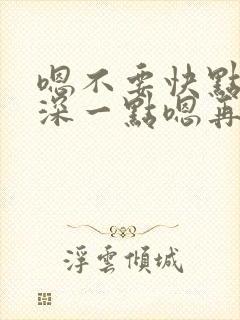 嗯不要快點
深一點嗯再
浮雲傾城